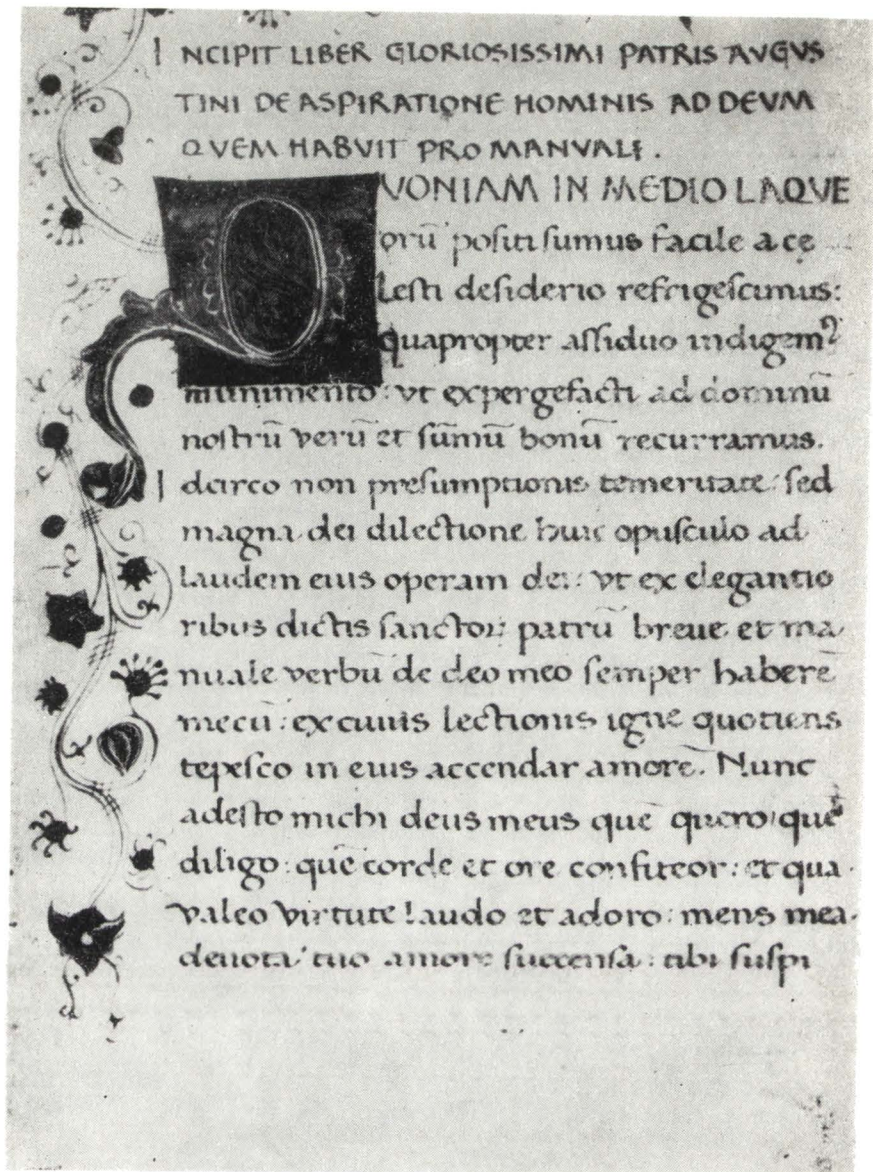 INCIPIT LIBER GLORIOSISSIMI PATRIS AVGVS
TINI DE ASPIRATIONE HOMINIS AD DEVM
QVEM HABVIT PRO MANVALI.
QVONIAM IN MEDIO LAQVE
orū positi sumus facile a ce
lesti desiderio refrigescimus:
quapropter assiduo indigemꝰ
munimento: vt expergefacti ad dominū
nostrū verū et sūmū bonū recurramus.
Idcirco non presumptionis temeritate: sed
magna dei dilectione huic opusculo ad
laudem eius operam dei: vt ex elegantio
ribus dictis sanctoꝝ patrū breue et ma
nuale verbū de deo meo semper haberē
mecū: ex cuius lectionis igne quotiens
tepesco in eius accendar amorē. Nunc
adesto michi deus meus quē quero: quē
diligo: quē corde et ore confiteor: et qua
valeo virtute laudo et adoro: mens mea
deuota: tuo amore succensa: tibi suspi